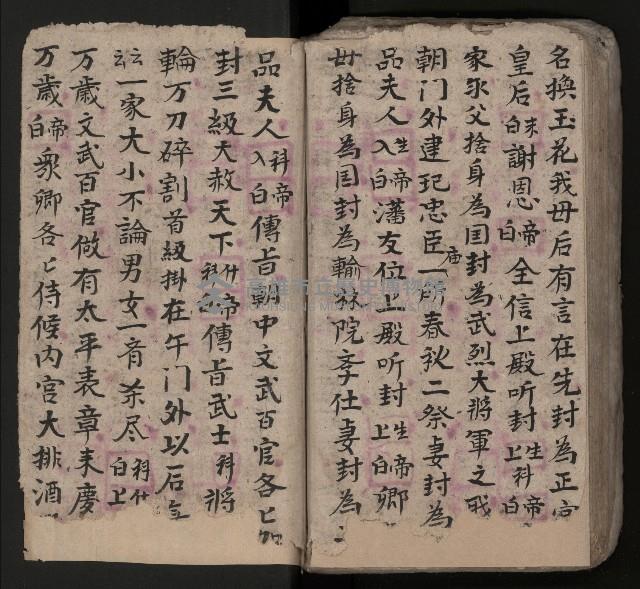 名換玉花我母后有言在先封為正宮
皇后末白謝恩帝白全信上殿听封生上科白帝
家永父捨身為国封為武烈大將軍之职
朝门外建玘忠臣庙一所春秋二祭妻封為
品夫人生入白帝潘友位上殿听封生上白帝卿
母捨身為国封為翰林院孝仕妻封為
品夫人科入白帝傳旨朝中文武百官各匕加
封三級大赦天下什科帝傳旨武士科將
輪万刀碎割首級掛在午门外以后
云云一家大小不論男女一音杀尽科什白上
万歲文武百官做有太平表章来慶
万歲帝白眾卿各匕侍候内官大排酒
高雄市立歷史博物館